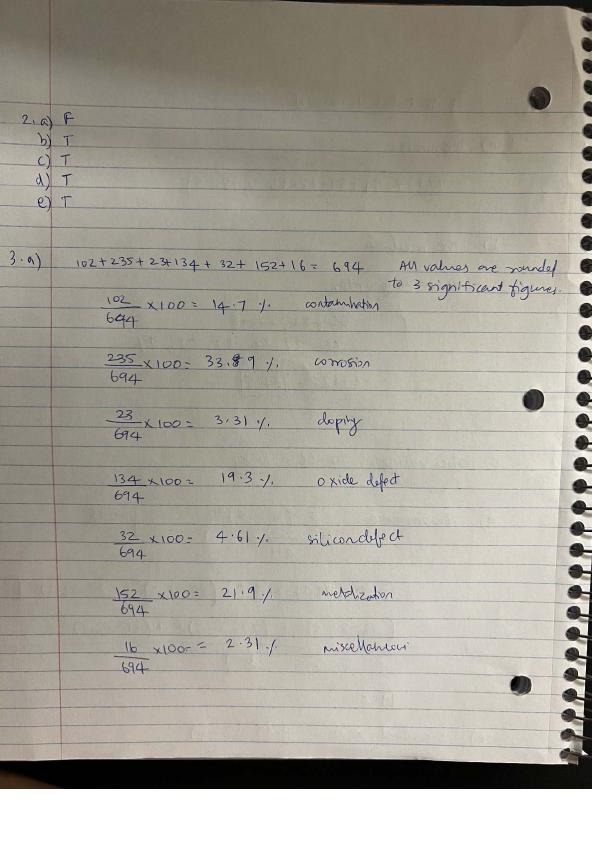 2. a) F
b) T
c) T
d) T
e) T
3. a) 102 + 235 + 23 + 134 + 32 + 152 + 16 = 694 All values are rounded
to 3 significant figures.
102/694 × 100 = 14.7 % contamination
235/694 × 100 = 33.89 % corrosion
23/694 × 100 = 3.31 % doping
134/694 × 100 = 19.3 % oxide defect
32/694 × 100 = 4.61 % silicon defect
152/694 × 100 = 21.9 % metalization
16/694 × 100 = = 2.31 %